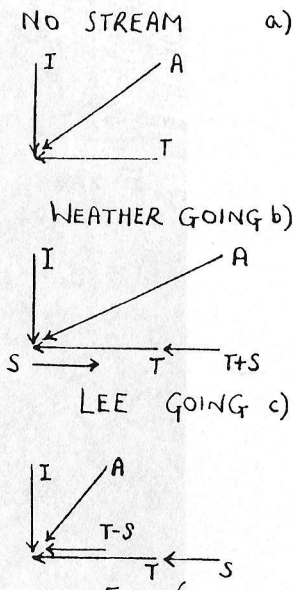 NO STREAM a)
I A
T
WEATHER GOING b)
I A
S T T+S
LEE GOING c)
I A
T-S
T S